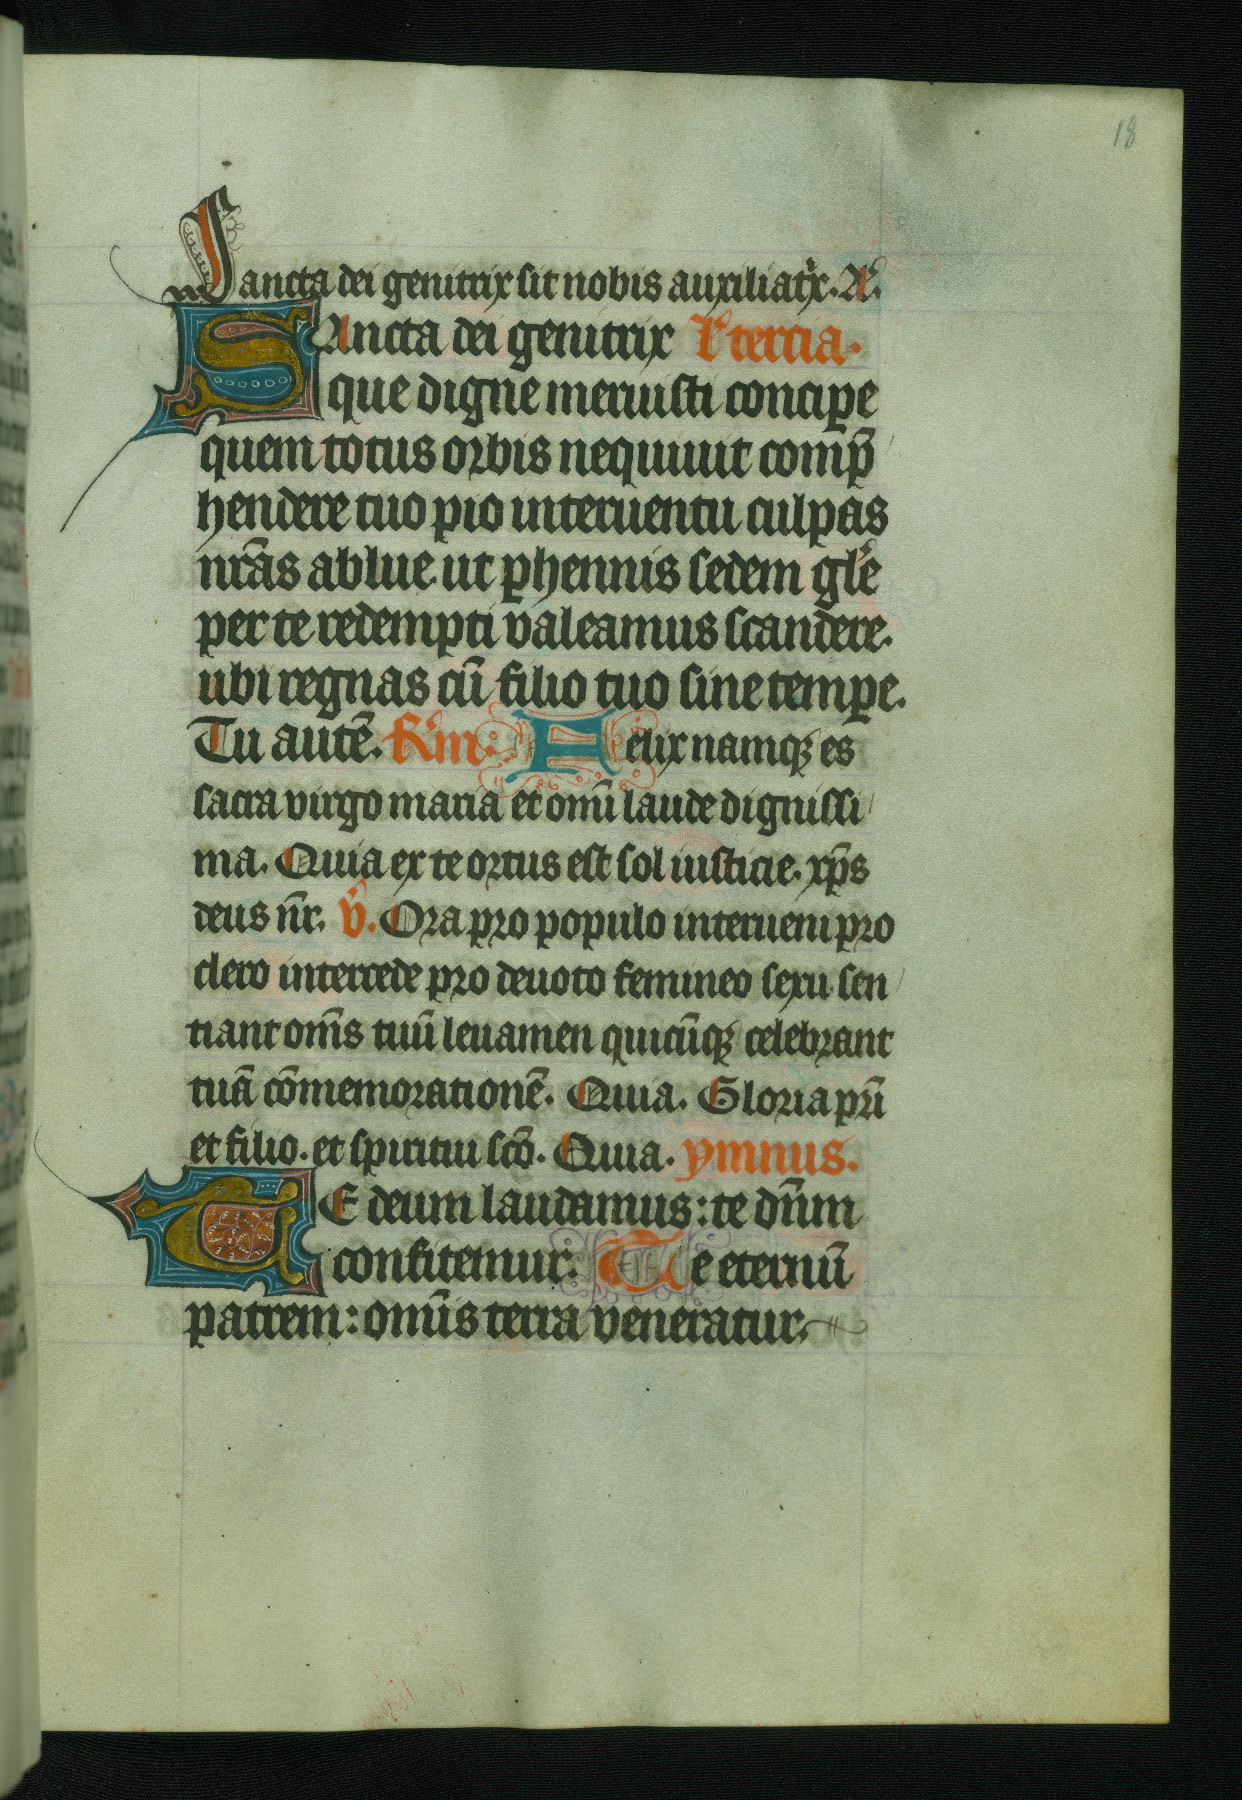 18
Sancta dei genitrix sit nobis auxiliatx. A.
SAncta dei genitrix L tercia.
que digne meruisti concipe
quem totus orbis nequiuit comp̄
hendere tuo pio interuentu culpas
nr̄as ablue. ut ꝑhennis sedem gl̄e
per te redempti valeamus scandere.
ubi regnas cū filio tuo sine temꝑe.
Tu autē. R. iii. Felix namqꝫ es
sacra virgo maria et omī laude dignissi
ma. Quia ex te ortus est sol iusticie. xp̄s
deus nr̄. v̄. Ora pro populo interueni pro
clero intercede pro deuoto femineo sexu sen
tiant om̄s tuū leuamen quicūqꝫ celebrant
tuā cōmemorationē. Quia. Gloria pr̄i
et filio. et spiritui scō. Quia. ymnus.
TE deum laudamus: te dn̄m
confitemur. Te eternū
patrem: omīs terra veneratur.